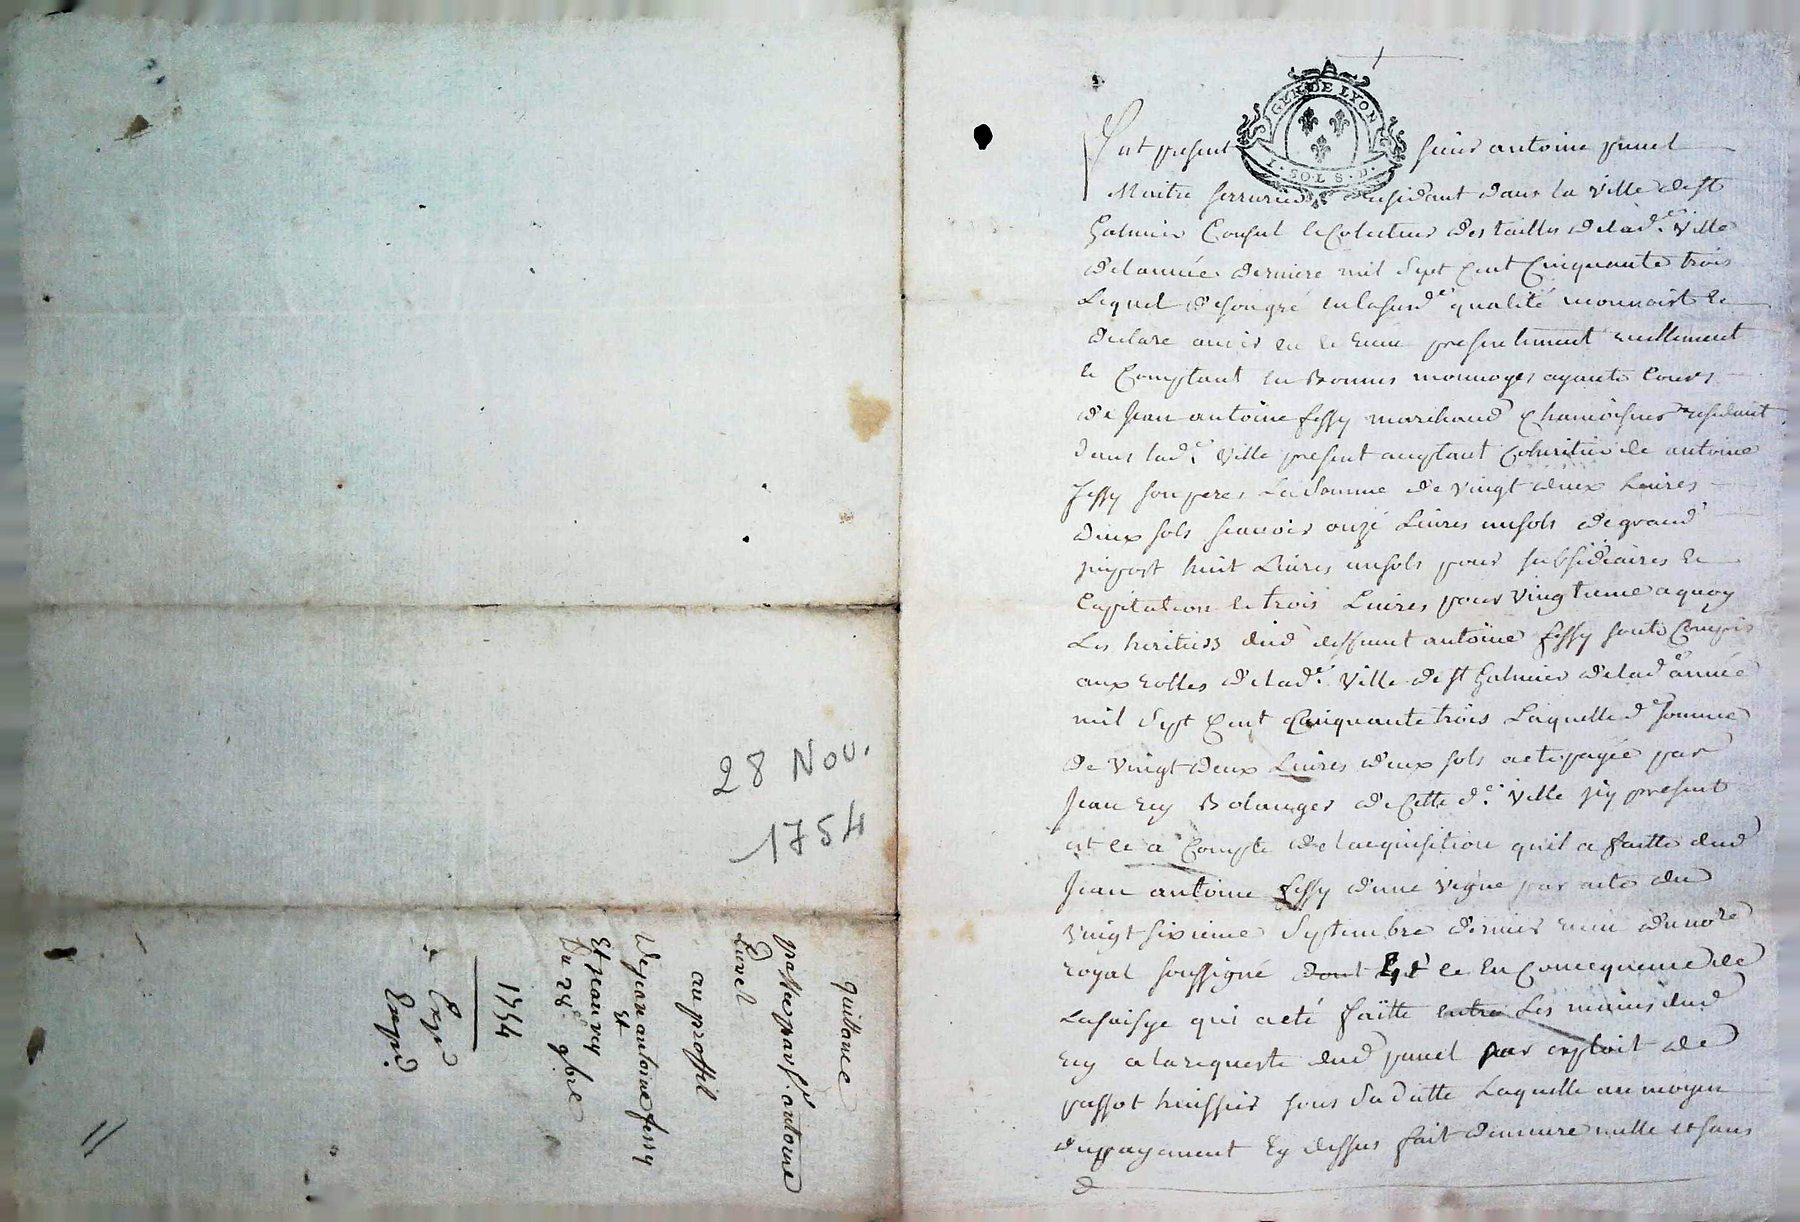 28 Nov.
1754
quittance
passée par sr. antoine
punel
au proffit
de jean antoine fessy
et
Et jean rey
Du 28e 9bre
1754
Expd
Expd.
GEN DE LYON
I. SOL S. D.
Fut present sieur antoine punel
Maitre serrurier residant dans la ville de st
Galmier Consul et Colecteur des tailles de lade. Ville
de l'année derniere mil sept Cent Cinquante trois
Lequel de son gré en la susde qualité reconnoist et
declare avoir eu et receu presentement reellement
et Comptant en Bonnes monnoyes ayants Cours
de Jean antoine fessy marchand Chamoiseur residant
dans lade. Ville present aceptant Coheritier de antoine
fessy son pere La somme de vingt deux Livres
deux sols scavoir onze Livres un sols de grand
impost huit Livres un sols pour subsidiaires et
Capitation et trois Livres pour vingtieme a quoy
Les heritiers dud deffunt antoine fessy sont Compris
aux rolles de lade. Ville de st Galmier de lade année
mil sept Cent Cinquante trois Laquelle de somme
de vingt deux Livres deux sols a eté payée par
Jean rey Bolanger de Cette de. Ville icy present
et ce a Compte de l'acquisition qu'il a faitte dud
Jean antoine fessy d'une vigne par acte du
vingt sixieme septembre dernier receu du nore
royal soussigné dont Est ce En Concequence de
La saisye qui a eté faitte entre Les mains dud
rey a la requeste dud punel par exploit de
passot huissier sous sa datte Laquelle au moyen
du payement Cy dessus fait demeure nulle et sans